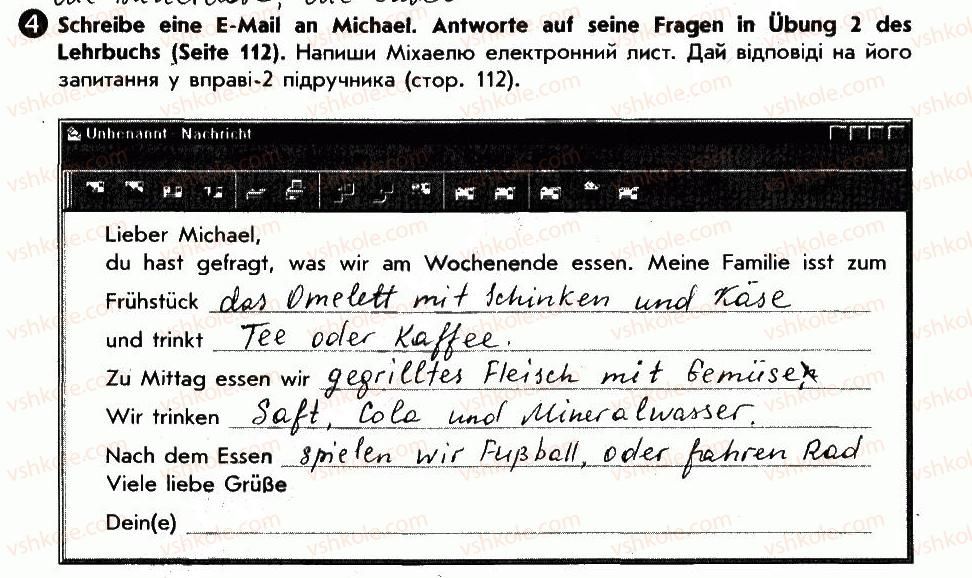 4 Schreibe eine E-Mail an Michael. Antworte auf seine Fragen in Übung 2 des
Lehrbuchs (Seite 112). Напиши Міхаелю електронний лист. Дай відповіді на його
запитання у вправі-2 підручника (стор. 112).
Unbenannt - Nachricht
Lieber Michael,
du hast gefragt, was wir am Wochenende essen. Meine Familie isst zum
Frühstück das Omelett mit Schinken und Käse
und trinkt Tee oder Kaffee.
Zu Mittag essen wir gegrilltes Fleisch mit Gemüse
Wir trinken Saft, Cola und Mineralwasser.
Nach dem Essen spielen wir Fußball, oder fahren Rad
Viele liebe Grüße
Dein(e)
vshkole.com